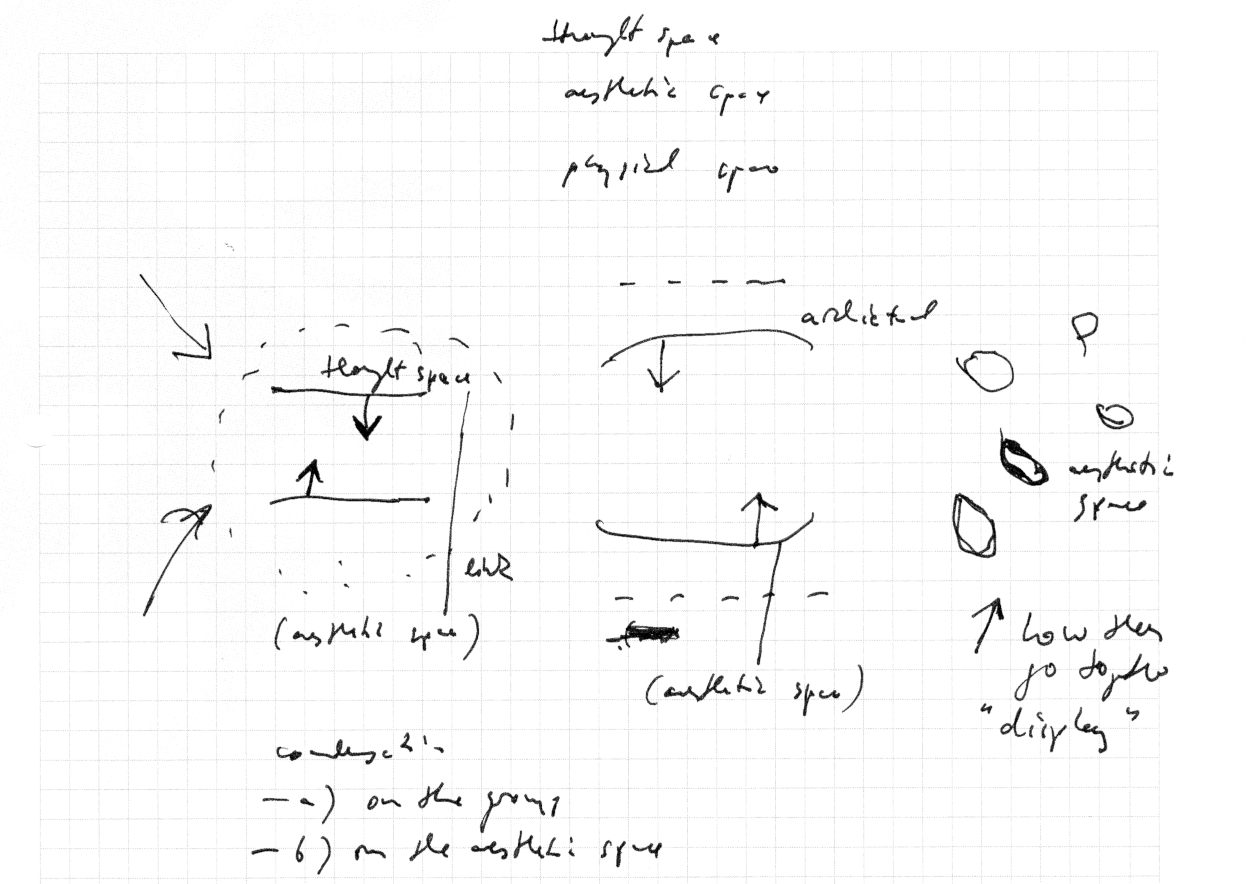 thought space
aesthetic space
physical space
architectural
thought space
aesthetic
space
link
(aesthetic space)
how they
go together
"display"
(aesthetic space)
condensation
– a) on the group
– b) on the aesthetic space